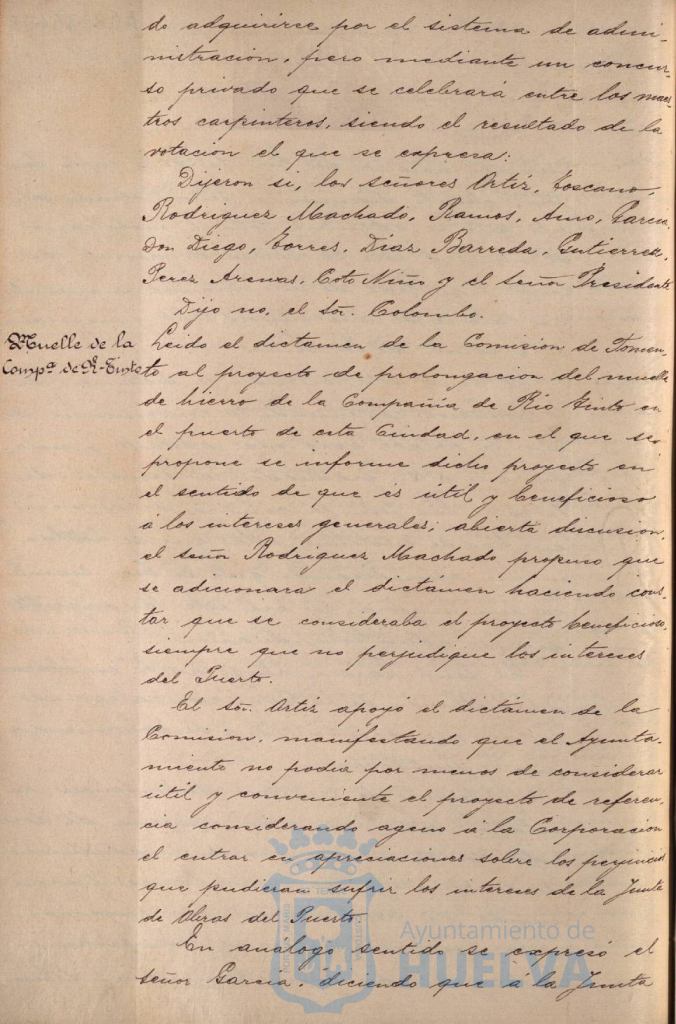 do adquirirse por el sistema de admi-
nistración, pero mediante un concur-
so privado que se celebrará entre los maes-
tros carpinteros, siendo el resultado de la
votacion el que se expresa:
Dijeron si, los señores Ortiz, Toscano,
Rodriguez Machado, Ramos, Amo, Garcia
Don Diego, Torres, Diaz Barreda, Gutierrez,
Perez Arenas, Coto Niño y el señor Presidente
Dijo no, el Sor. Colombo.
Muelle de la
Compª de R-Tinto
Leido el dictamen de la Comision de Fomen-
to al proyecto de prolongacion del muelle
de hierro de la Compañia de Rio Tinto en
el puerto de esta Ciudad, en el que se
propone se informe dicho proyecto en
el sentido de que és útil y beneficioso
á los intereses generales; abierta discusion,
el señor Rodriguez Machado propuso que
se adicionara el dictámen haciendo cons-
tar que se consideraba el proyecto beneficioso,
siempre que no perjudique los intereses
del Puerto.
El Sor. Ortiz apoyó el dictámen de la
Comision, manifestando que el Ayunta-
miento no podia por menos de considerar
útil y conveniente el proyecto de referen-
cia considerando ageno á la Corporacion
el entrar en apreciaciones sobre los perjuicios
que pudieran sufrir los intereses de la Junta
de Obras del Puerto
En análogo sentido se expresó el
señor Garcia, diciendo que á la Junta
Ayuntamiento de
HUELVA